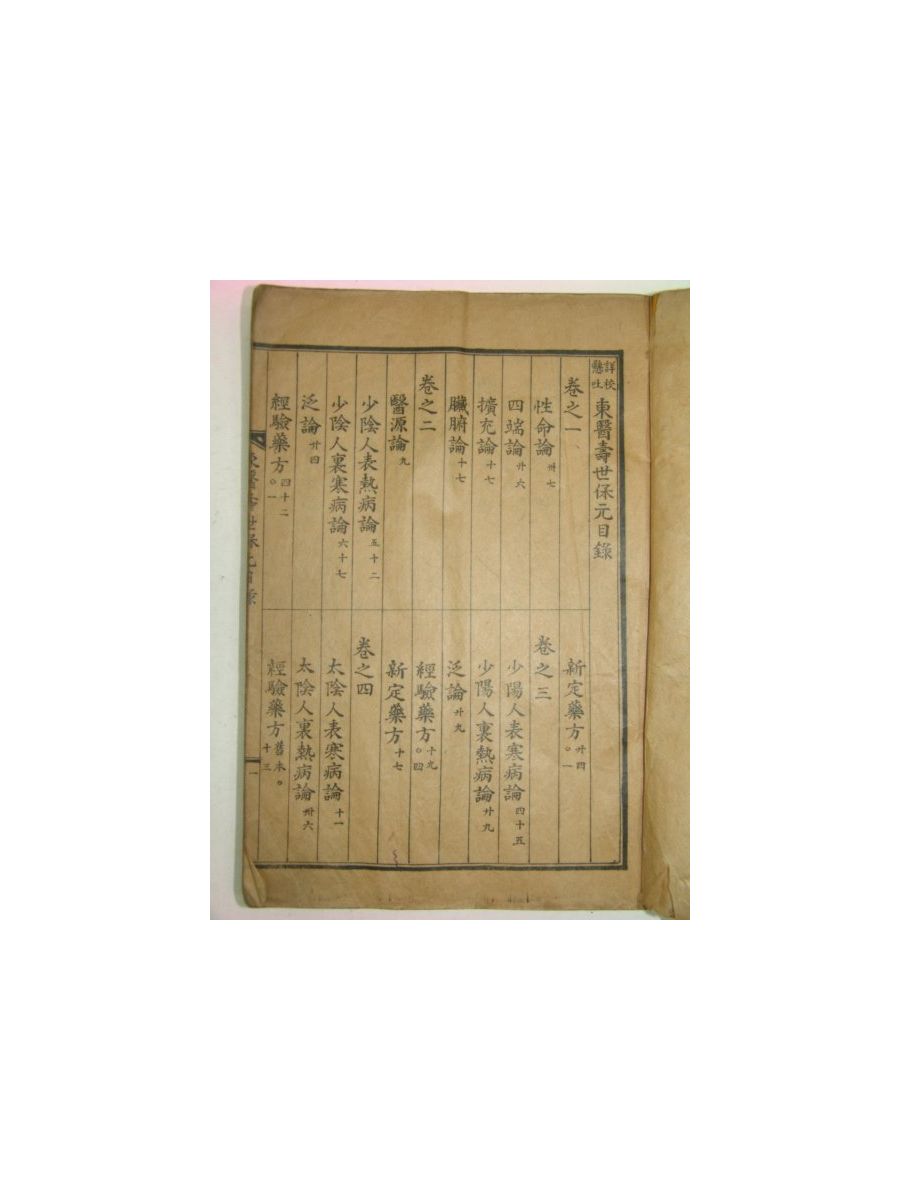 詳校懸吐 東醫壽世保元目錄
卷之一
性命論 卅七
四端論 廿六
擴充論 十七
臟腑論 十七
卷之二
醫源論 九
少陰人表熱病論 五十二
少陰人裏寒病論 六十七
泛論 廿四
經驗藥方 四十二 〇一
新定藥方 廿四 〇一
卷之三
少陽人表寒病論 四十五
少陽人裏熱病論 廿九
泛論 廿九
經驗藥方 十九 〇四
新定藥方 十七
卷之四
太陰人表寒病論 十一
太陰人裏熱病論 卅六
經驗藥方 舊本〇 十三
東醫壽世保元目錄
一